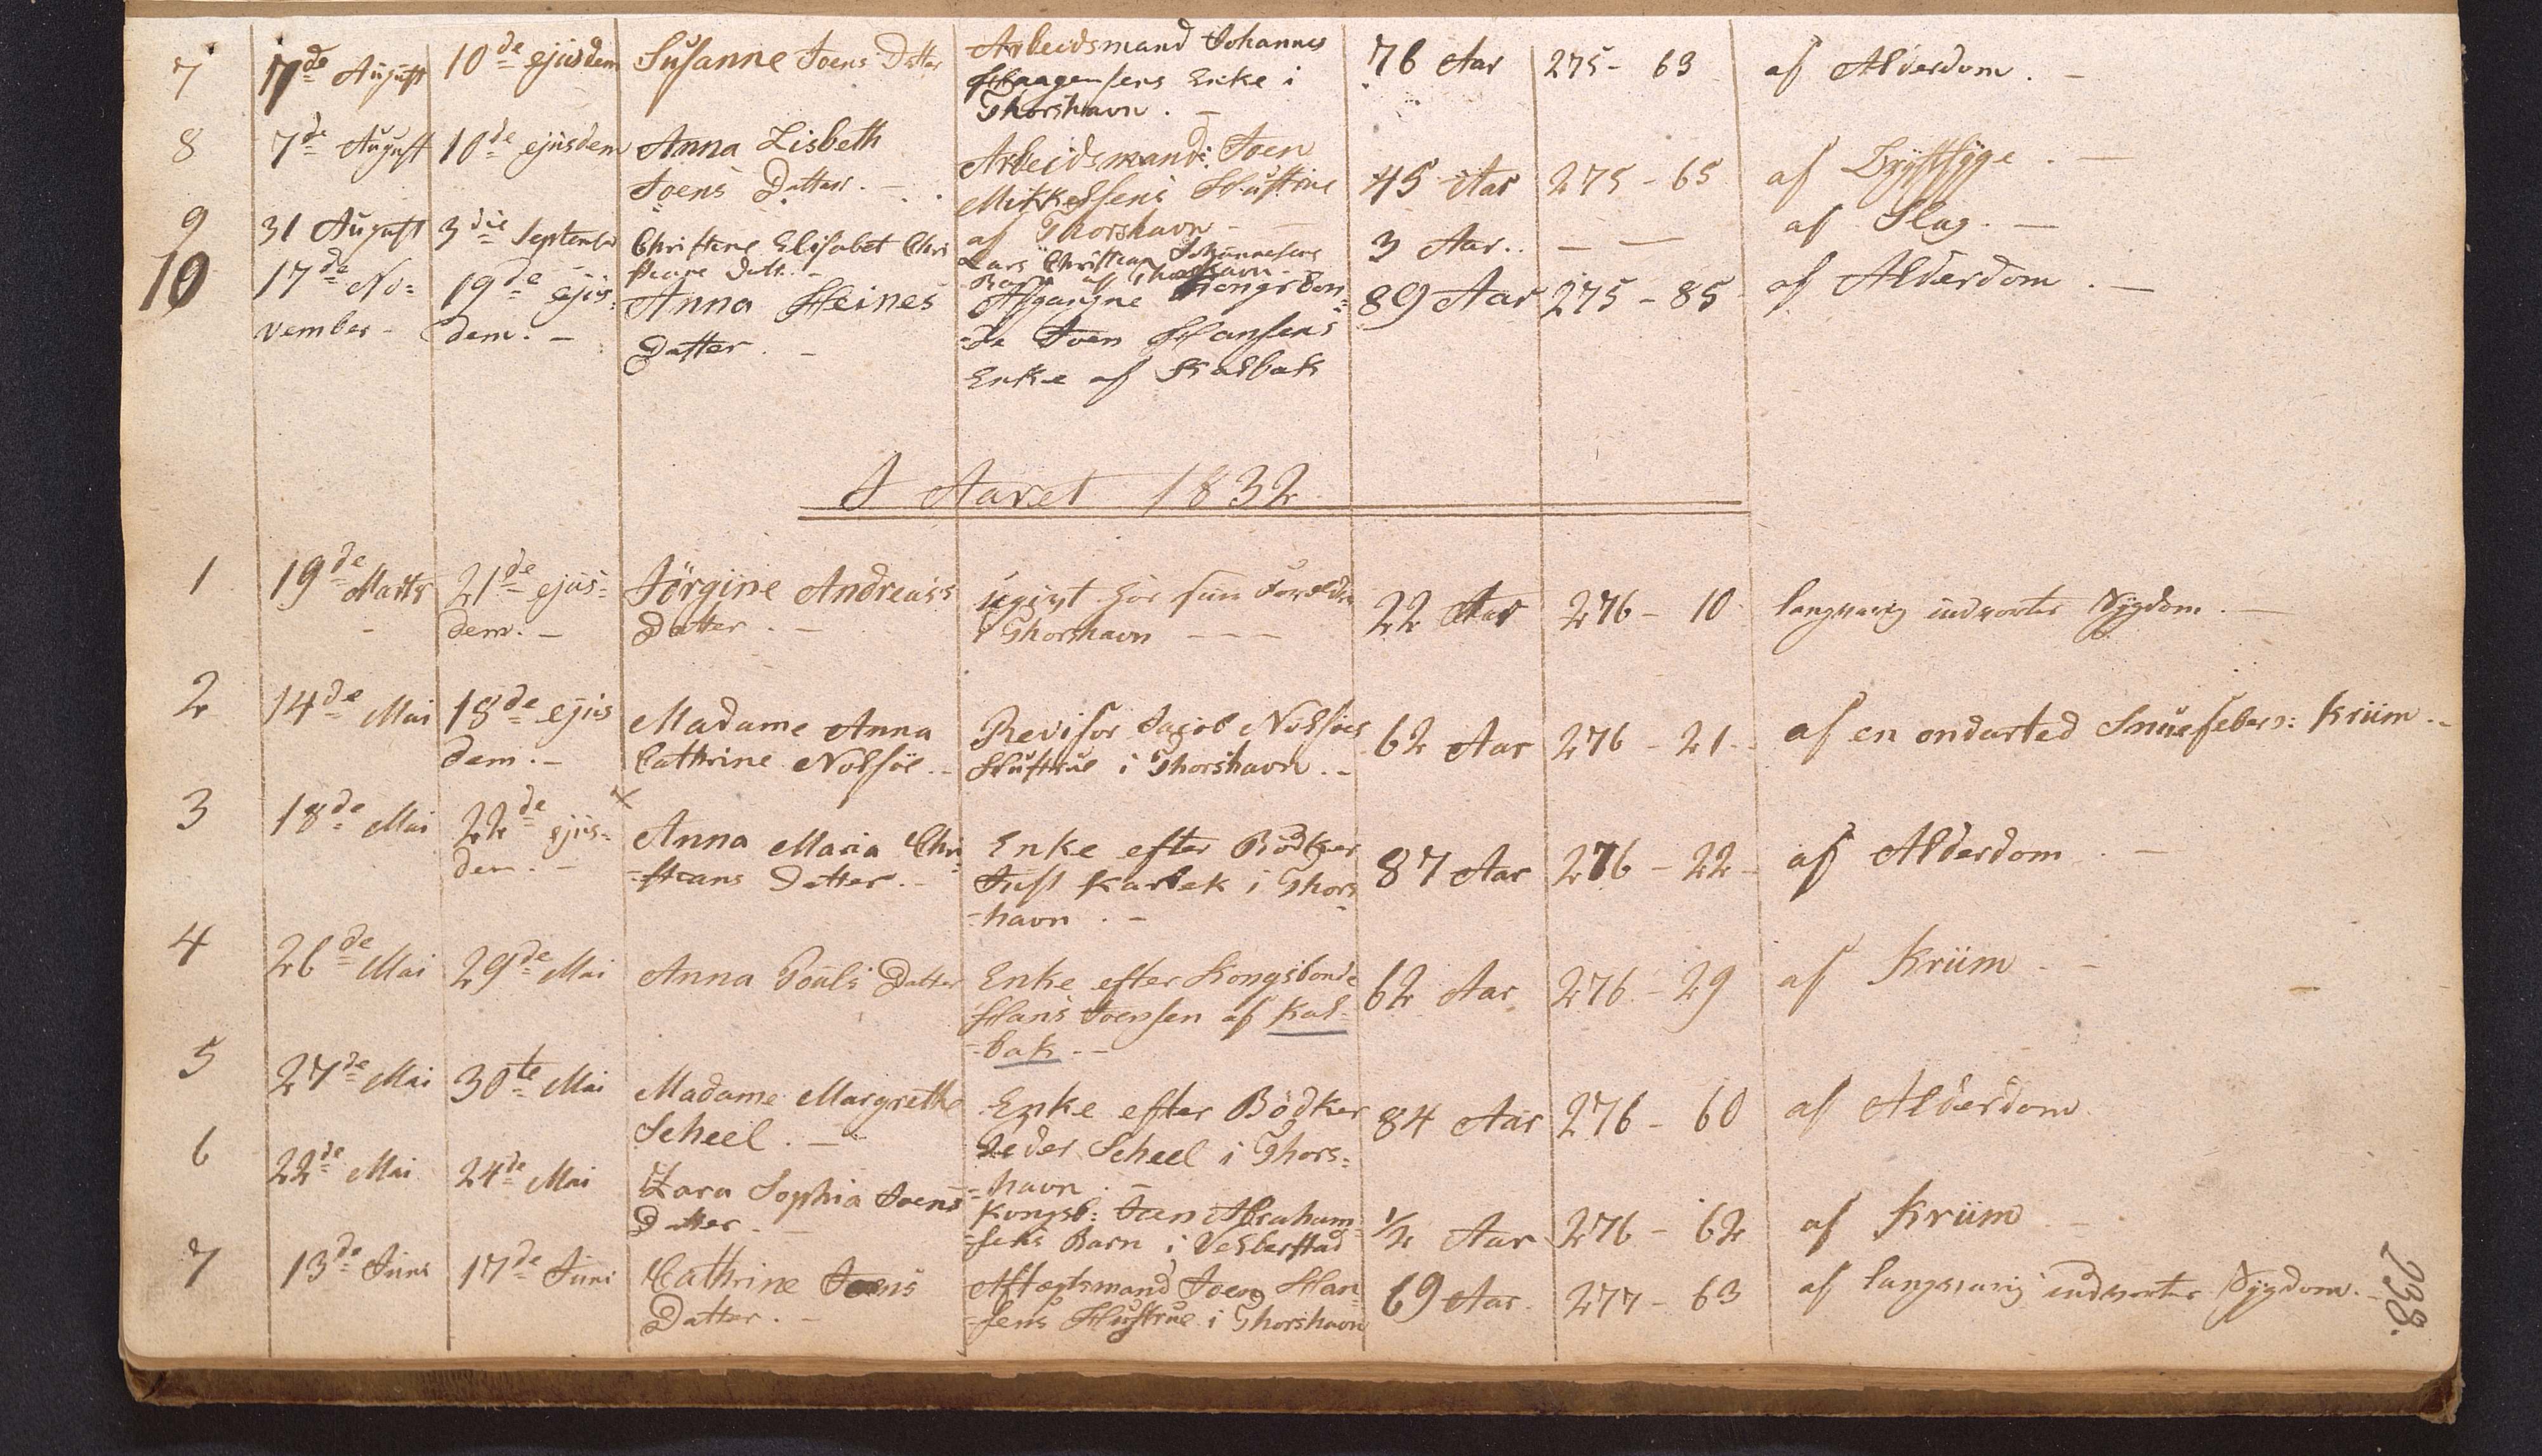 7 7de August 10de ejusdem Susanne Joens Datter Arbeidsmand Johannes 76 Aar 275 - 63 af Alderdom. -
Haagensens Enke i
Thorshavn. -
8 7de August 10de ejusdem Anna Lisbeth Arbeidsmand Joen 45 Aar 275 - 65 af Brÿstsÿge. -
Joens Datter. - Mikkelsens Hustrue
af Thorshavn -
9 31 August 3die Septembr Christine Elisabet Chri Lars Christian Johannesens 3 Aar. - - af Slag. -
stians Datt. - Barn af Thorshavn -
10 17de No= 19de ejus= Anna Heines Afgangne Kongsbon= 89 Aar 275 - 85 af Alderdom. -
vember - dem. - Datter. - =de Joen Hansens
Enke af Kalbak
I Aaret 1832
1 19de Marts 21de ejus= Jörgine Andreas's ugivt hos sine Forældre 22 Aar 276 - 10 langvarig indvortes Sÿgdom. -
dem. - Datter. - i Thorshavn - - -
2 14de Mai 18de ejus Madame Anna Revisor Jacob Nolsöes 62 Aar 276 - 21. af en ondarted Snuefeber: Krüm. -
dem. - Cathrine Nolsöe. - Hustrue i Thorshavn. -
3 18de Mai 22de ejus= × Anna Maria Chri= Enke efter Bödker 87 Aar 276 - 22 - af Alderdom. -
dem. - =stians Datter. - Just Karbek i Thors
=havn. -
4 26de Mai 29de Mai Anna Pouls Datter Enke efter Kongsbonde 62 Aar 276 - 29 af Krüm - -
Hans Joensen af Kal=
=bak. -
5 27de Mai 30te Mai Madame Margrethe Enke efter Bödker 84 Aar 276 - 60 af Alderdom
Scheel. - Peder Scheel i Thors=
=havn. -
6 22de Mai 24de Mai Zara Sophia Joens Kongsb: Joen Abraham= 1/2 Aar 276 - 62 af Krüm -
Datter. - =sens Barn i Velberstad
7 13de Juni 17de Juni Cathrine Joens Aftægtsmand Joen Han= 69 Aar. 277 - 63 af langvarig indvortes Sÿgdom. -
Datter. - =sens Hustrue i Thorshavn
238.